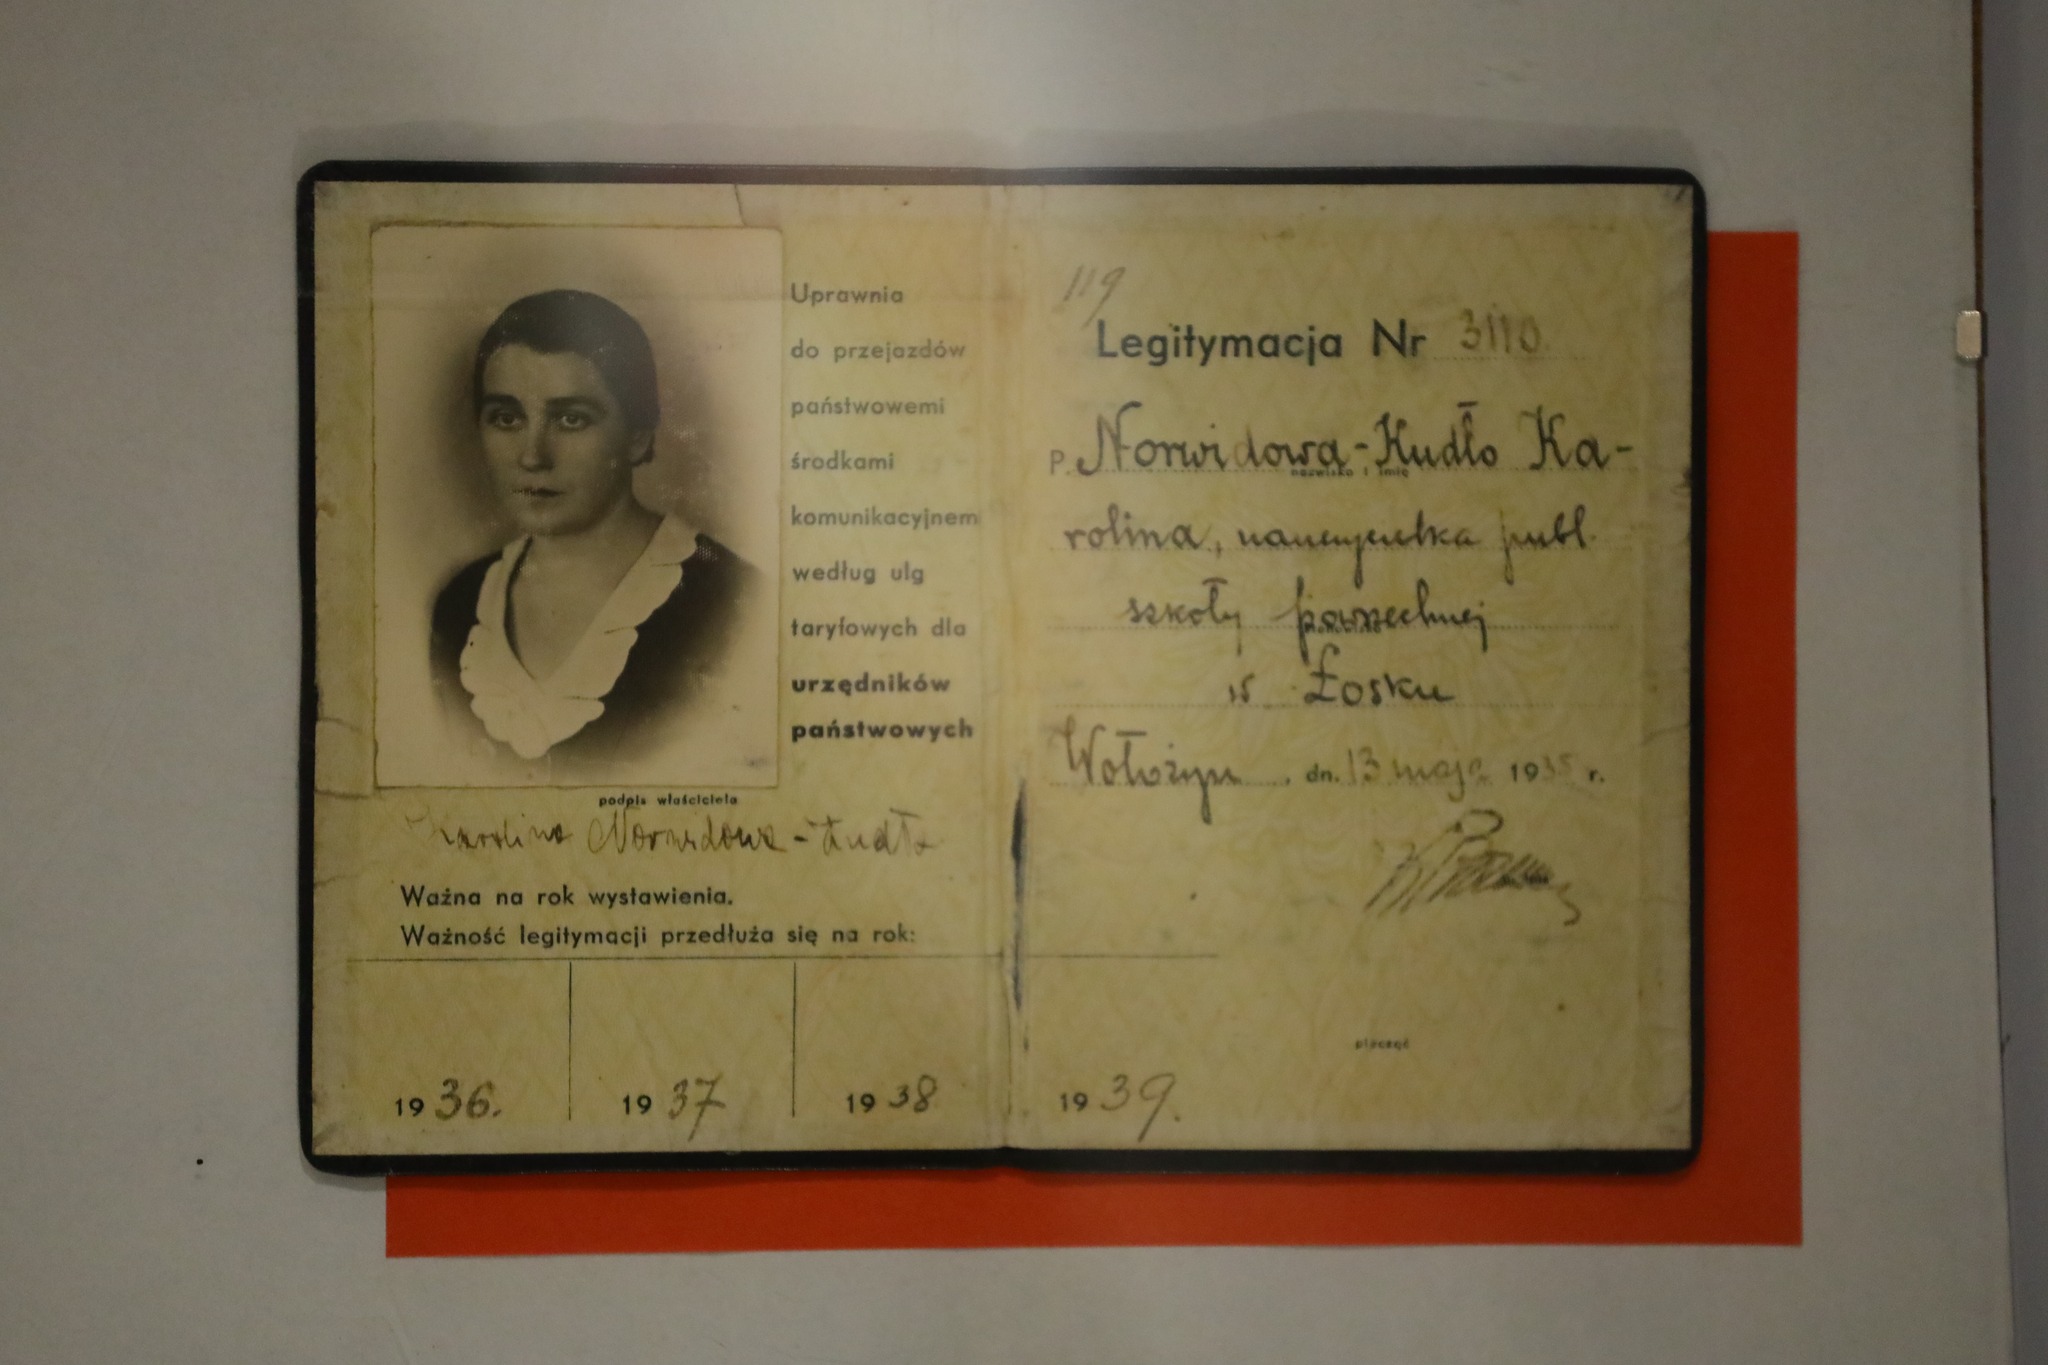 Uprawnia
do przejazdów
państwowemi
środkami
komunikacyjnem
według ulg
taryfowych dla
urzędników
państwowych
podpis właściciela
Karolina Norwidowa-Kudło
Ważna na rok wystawienia.
Ważność legitymacji przedłuża się na rok:
1936.
1937
1938
119
Legitymacja Nr 3110
P. Norwidowa-Kudło Ka-
nazwisko i imię
rolina, nauczycielka publ.
szkoły powszechnej
w Łosku
Wołożyn, dn. 13 maja 1935 r.
pieczęć
1939.